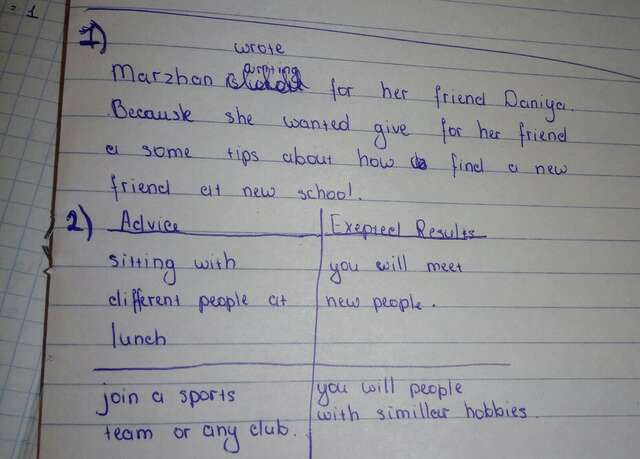 = 1
1)
wrote
Marzhan for her friend Daniya.
Because she wanted give for her friend
a some tips about how find a new
friend at new school.
2) Advice Exepted Results
sitting with you will meet
different people at new people.
lunch
join a sports you will people
team or any club. with simillar hobbies.